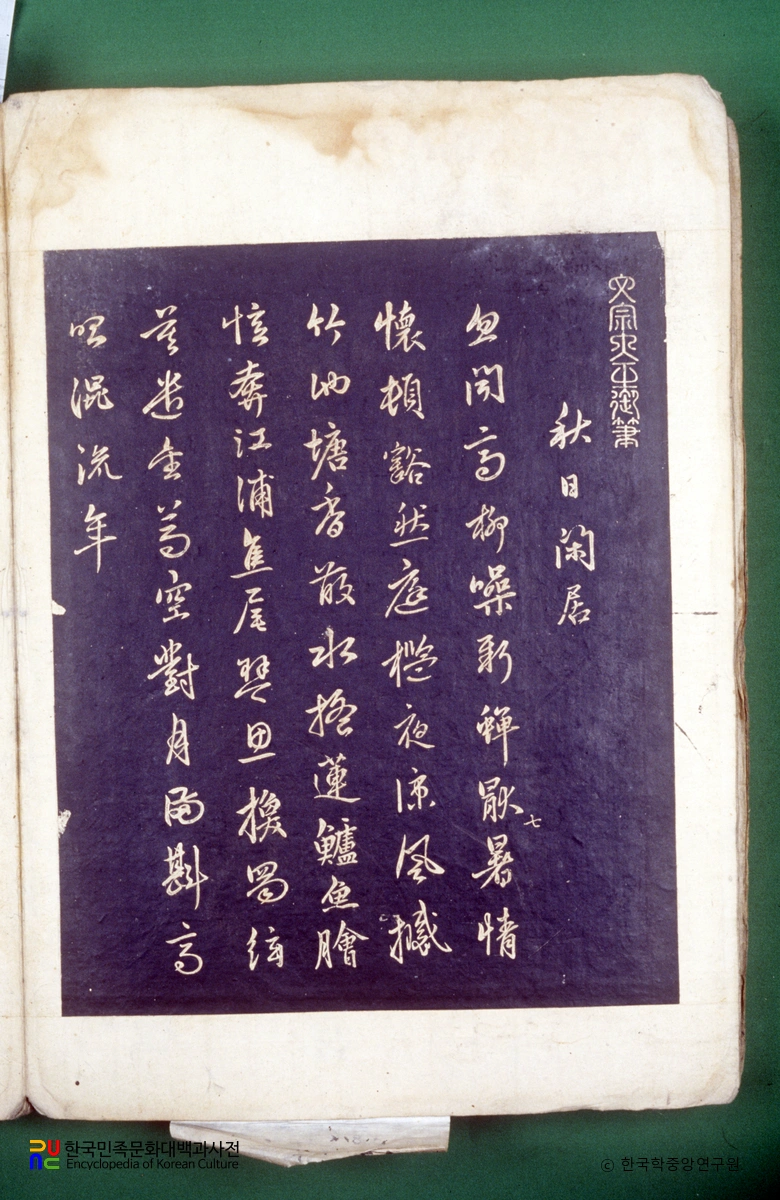 文宗大王御筆
秋日閑居
忽聞高柳噪新蟬厭暑情
懷頓豁然庭檻夜涼風撼
竹池塘香散水搖蓮鱸魚膾
憶奔江浦焦尾琴思換蜀絃
莫遣金尊空對月滿斟高
唱混流年
한국민족문화대백과사전
Encyclopedia of Korean Culture
© 한국학중앙연구원